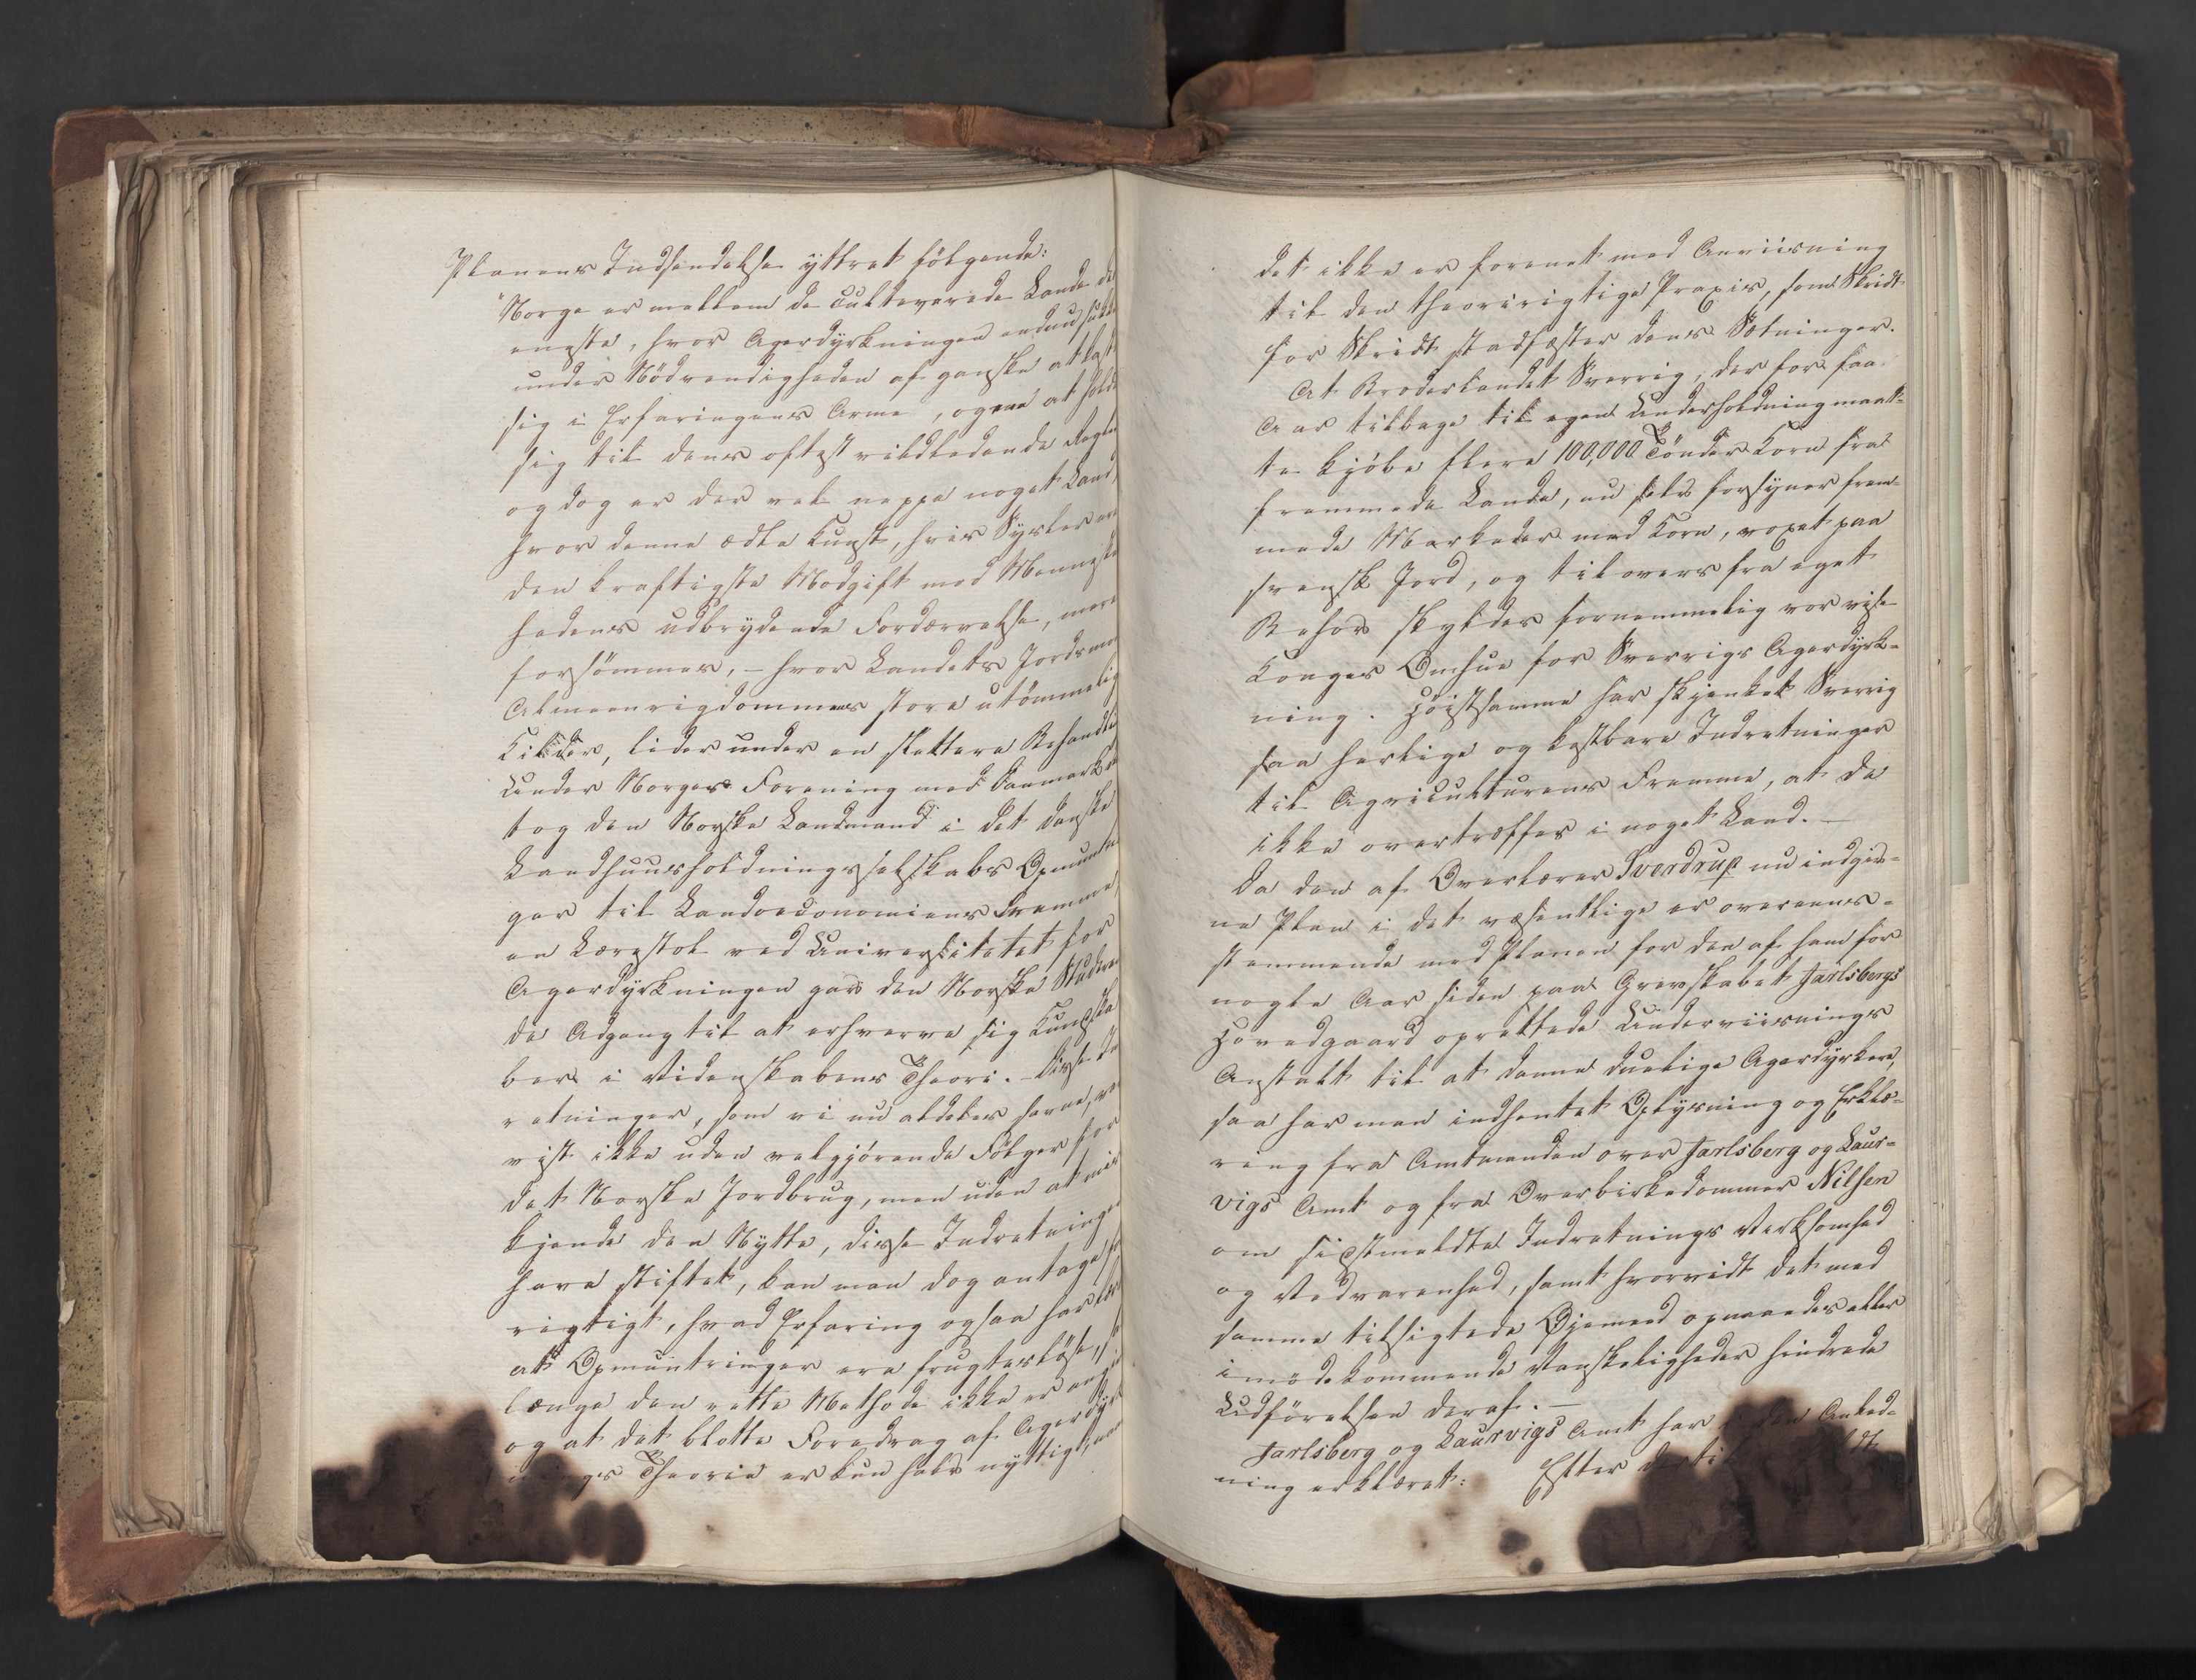 Planens Indsendelse yttret følgende:
"Norge er mellem de cultiverede Lande det
eneste, hvor Agerdyrkningen endnu sukker
under Nødvendigheden af ganske at kaste
sig i Erfaringens Arme, og ene at holde
sig til dens oftest vildledende Regler
og dog er der vel neppe noget Land,
hvor denne ædle Kunst, hvis Sysler ere
den kraftigste Modgift mod Menneske
hedens udbrydende Fordærvelse, mere
forsømmes, – hvor Landets Jordsmon
Almeenrigdommens store utømmelige
Kilder, lider under en slettere Behandling
Under Norges Forening med Danmark
tog den Norske Landmand i det danske
Landhuusholdningsselskabs Opmuntrin
ger til Landoeconomiens Fremme,
en Lærestol ved Universitetet for
Agerdyrkningen gav den Norske Studeren
de Adgang til at erhverve sig Kundska
ber i Videnskabens Theori. – Disse Ind
retninger, som vi nu aldeles savne, vare
vist ikke uden velgjørende Følger for
det Norske Jordbrug, men uden at mis
kjende den Nytte, disse Indretninger
have stiftet, kan man dog antage for
rigtigt, hvad Erfaring ogsaa har lært
at Opmuntringer ere frugtesløse, saa
længe den rette Methode ikke er angivet
og at det blotte Foredrag af Agerdyrk
nings Theorie er kun halv nyttigt, naar
det ikke er forenet med Anviisning
til den theoririgtige Praxis, som Skridt
for Skridt stadfæster dens Sætninger.
At Broderlandet Sverrig, der for faa
Aar tilbage til egen Underholdning maat-
te kjøbe flere 100,000 Tønder Korn fra
fremmede Lande, nu selv forsyner frem-
mede Markeder med Korn, voxet paa
svensk Jord, og tilovers fra eget
Behov skyldes fornemmelig vor vise
Konges Omhue for Sverrigs Agerdyrk-
ning. Høistsamme har skjenket Sverrig
saa herlige og kostbare Indretninger
til Agriculturens Fremme, at de
ikke overtræffes i noget Land. –
Da den af Overlærer Sverdrup nu indgiv-
ne Plan i det væsentlige er overeens-
stemmende med Planen for den af ham for
nogle Aar siden paa Grevskabet Jarlsbergs
Hovedgaard oprettede Underviisnings
Anstalt til at danne duelige Agerdyrkere,
saa har man indhentet Oplysning og Erklæ-
ring fra Amtmanden over Jarlsberg og Laur-
vigs Amt og fra Overbirkedommer Nilsen
om sidstmeldte Indretnings Virksomhed
og Vedvarenhed, samt hvorvidt det med
samme tilsigtede Øjemeed opnaaedes eller
imødekommende Vanskeligheder hindrede
Udførelsen deraf. –
Jarlsberg og Laurvigs Amt har i den Anled-
ning erklæret: Efter dertil